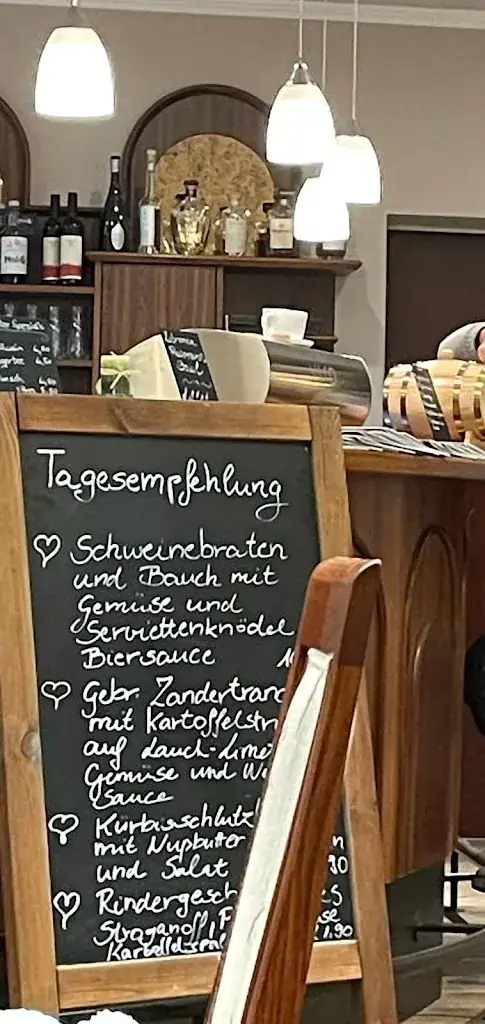 Tagesempfehlung
Schweinebraten
und Bauch mit
Gemüse und
Serviettenknödel
Biersauce
Gebr. Zandertran
mit Kartoffelstr
auf Lauch-Limet
Gemüse und We
sauce
Kürbisschlutz
mit Nußbutter
und Salat 90
Rindergesch es
Stroganoff, F se
Kartoffelspä 21.90